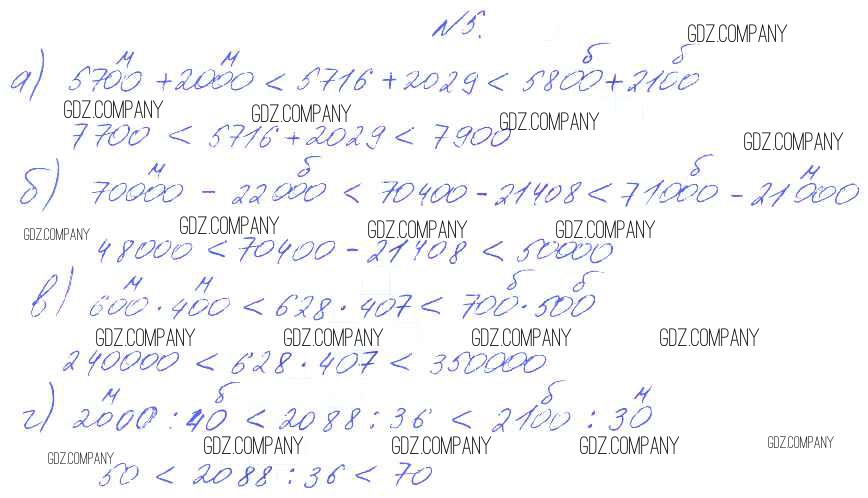 N5.
GDZ.COMPANY
м м б б
а) 5700 + 2000 < 5716 + 2029 < 5800 + 2100
GDZ.COMPANY GDZ.COMPANY GDZ.COMPANY
7700 < 5716 + 2029 < 7900
GDZ.COMPANY
м б б м
б) 70000 - 22000 < 70400 - 21408 < 71000 - 21000
GDZ.COMPANY GDZ.COMPANY GDZ.COMPANY GDZ.COMPANY
48000 < 70400 - 21408 < 50000
м м б б
в) 600 · 400 < 628 · 407 < 700 · 500
GDZ.COMPANY GDZ.COMPANY GDZ.COMPANY GDZ.COMPANY
240000 < 628 · 407 < 350000
м б б м
г) 2000 : 40 < 2088 : 36 < 2100 : 30
GDZ.COMPANY GDZ.COMPANY GDZ.COMPANY GDZ.COMPANY GDZ.COMPANY
50 < 2088 : 36 < 70